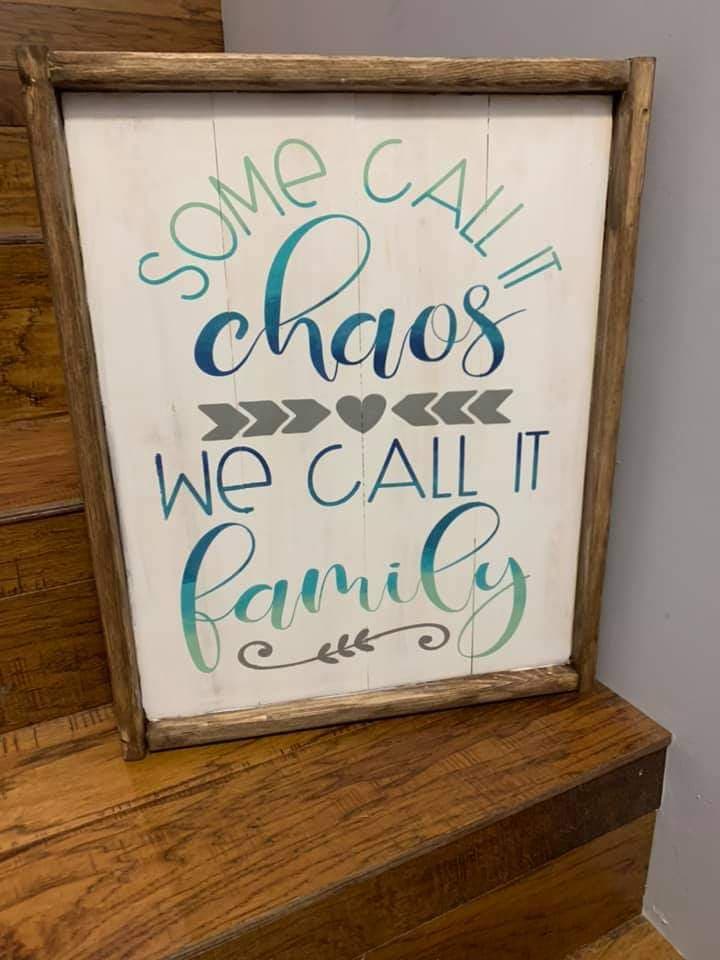 SOMe CALL IT
chaos
We CALL IT
family